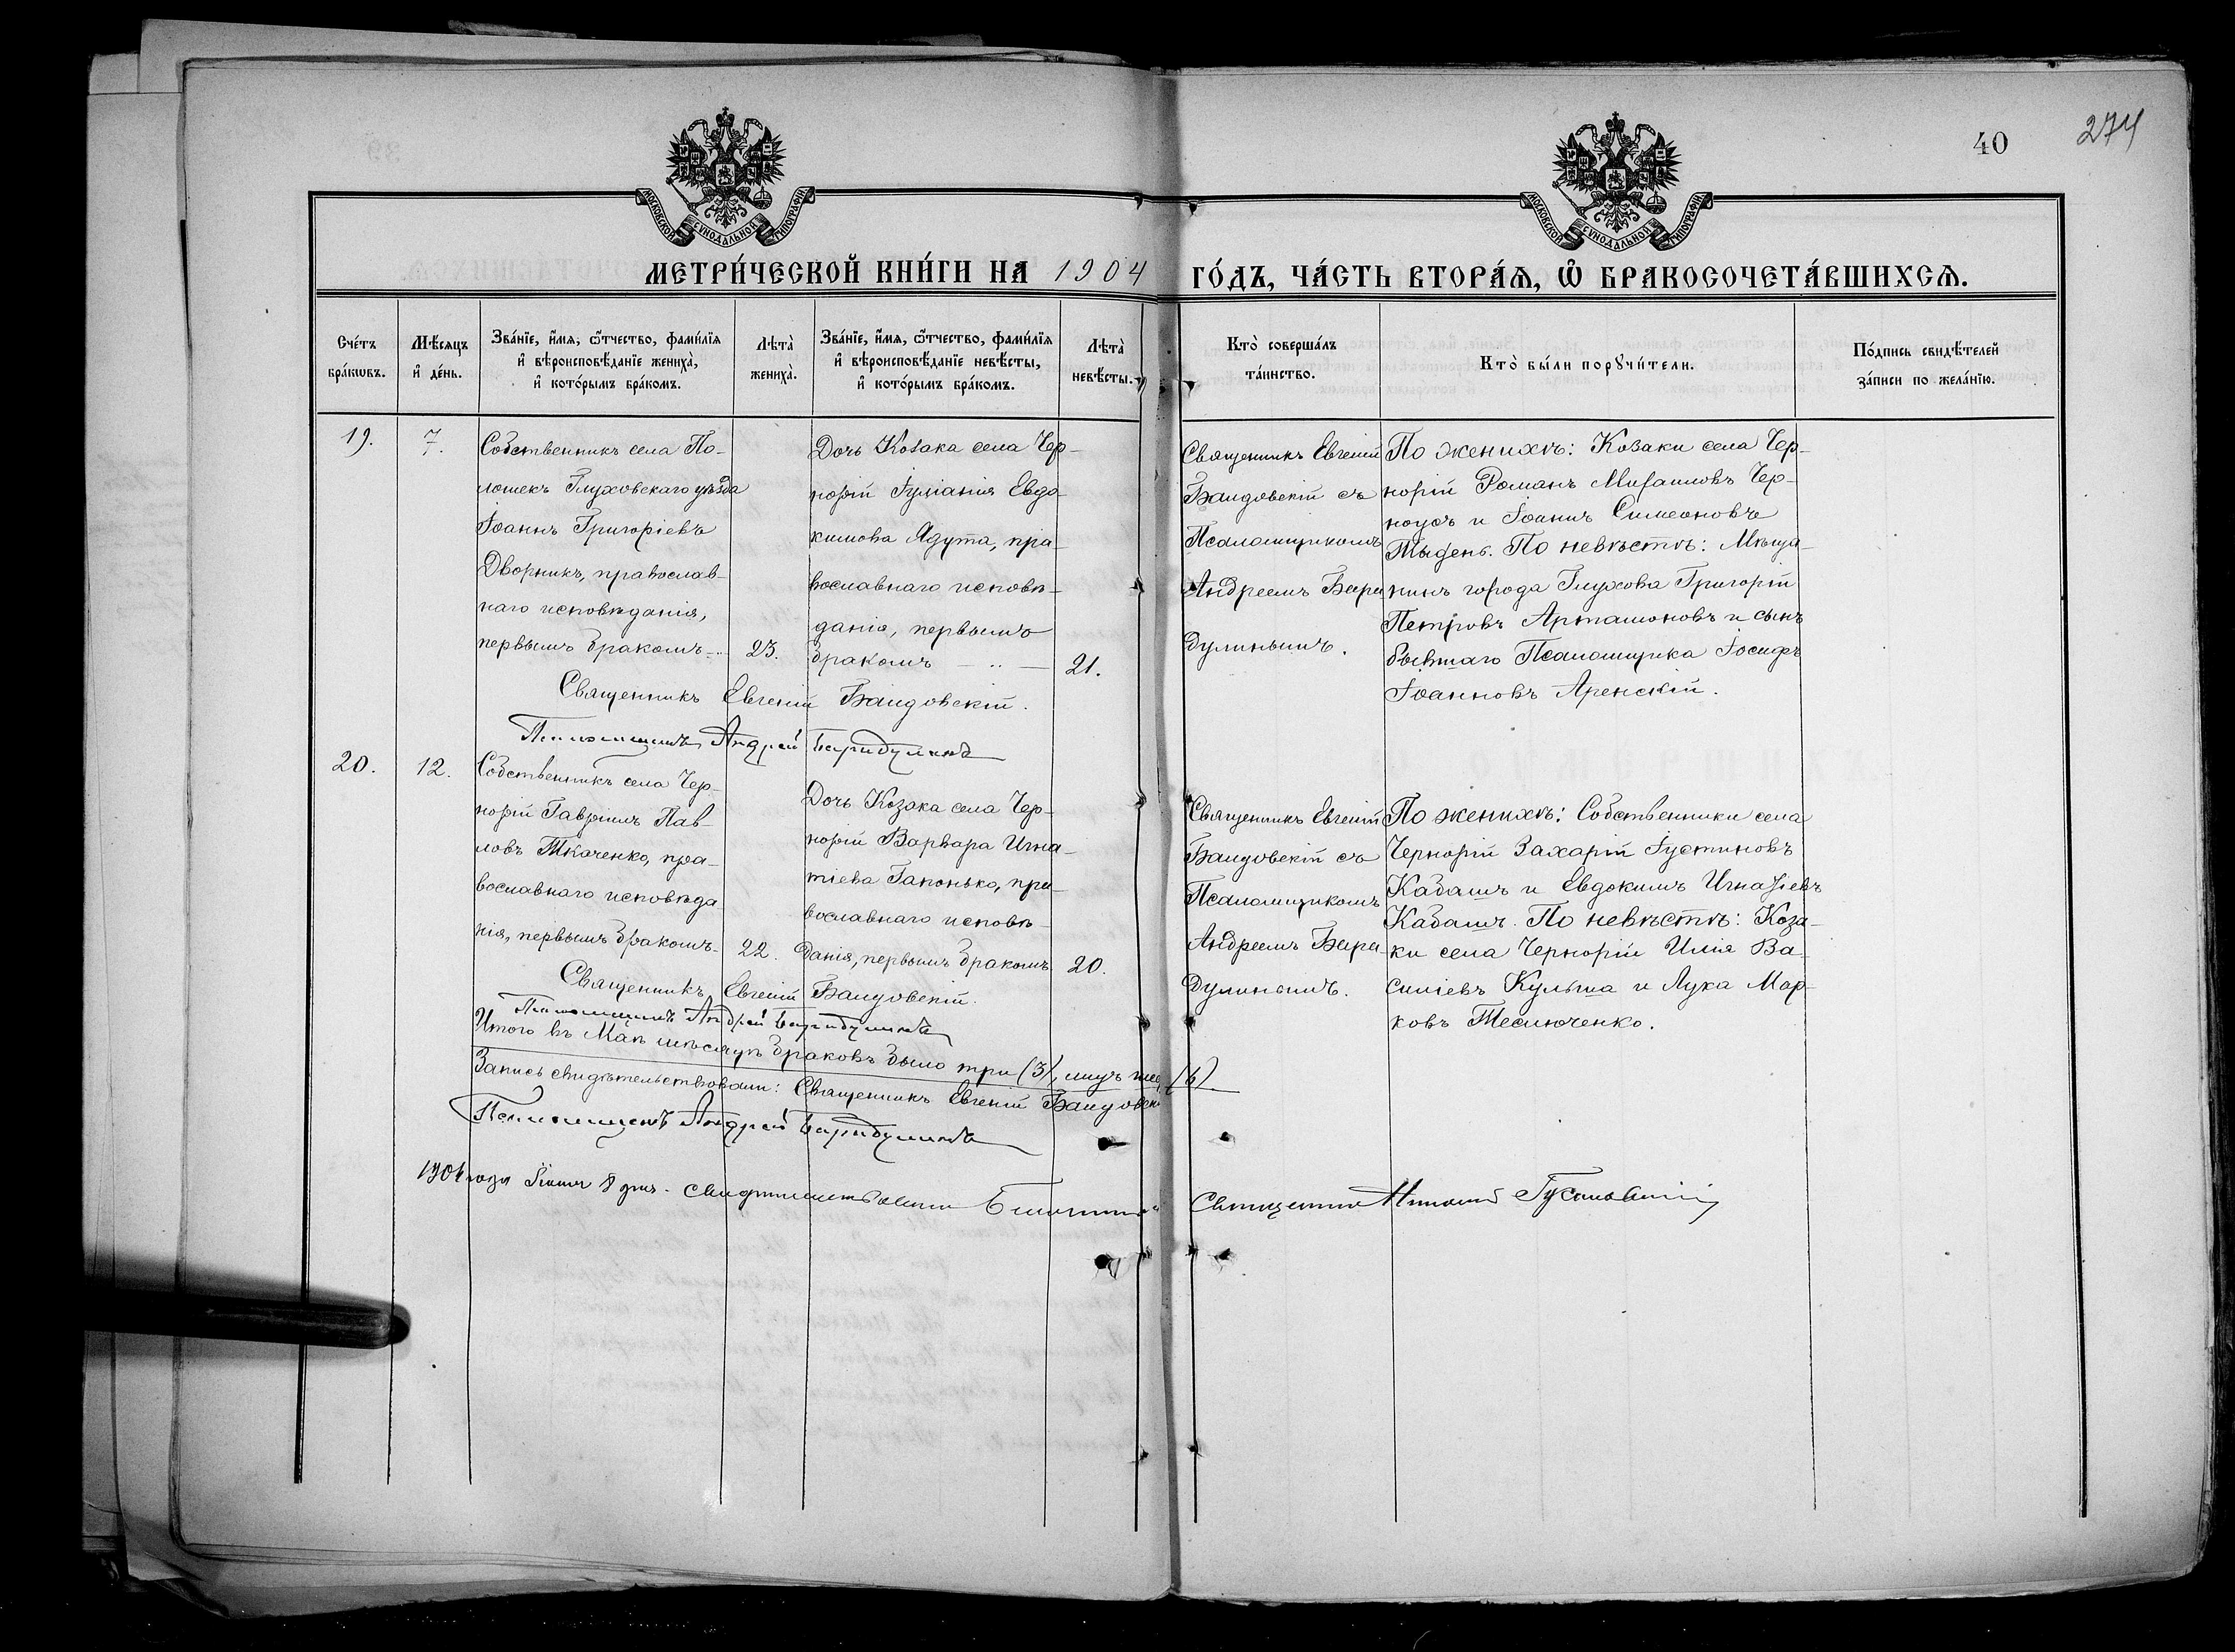 40
274
МОСКОВСКОЙ СѴНОДАЛЬНОЙ ТИПОГРАФІИ
МОСКОВСКОЙ СѴНОДАЛЬНОЙ ТИПОГРАФІИ
МЕТРИ́ЧЕСКОЙ КНИ́ГИ НА 1904 ГО́ДЪ, ЧА́СТЬ ВТОРА́Ѧ, Ѽ БРАКОСОЧЕТА́ВШИХСѦ.
Сче́тъ
бра́кѡвъ.
Мѣ́сяцъ
и҆ де́нь.
Зва́нїе, и҆́мя, ѻ҆́тчество, фами́лїя
и҆ вѣроисповѣ́данїе жениха̀,
и҆ кото́рымъ бра́комъ.
Лѣта̀
жениха̀.
Зва́нїе, и҆́мя, ѻ҆́тчество, фами́лїя
и҆ вѣроисповѣ́данїе невѣ́сты,
и҆ кото́рымъ бра́комъ.
Лѣта̀
невѣ́сты.
Кто̀ соверша́лъ
та́инство.
Кто̀ бы́ли порꙋчи́тели.
По́дпись свидѣ́телей
за́писи по жела́нїю.
19.
7.
Собственникъ села По-
лошекъ Глуховскаго уѣзда
Іоаннъ Григоріевъ
Дворникъ, православ-
наго исповѣданія,
первымъ бракомъ
23.
Дочь Козака села Чер-
норій Іуліанія Евдо-
кимова Адута, пра-
вославнаго исповѣ-
данія, первымъ
бракомъ
21.
Священникъ Евгеній
съ
Псаломщикомъ
Андреемъ Бари
дулинымъ.
По женихѣ: Козаки села Чер-
норій Романъ Михаиловъ Чер-
ноусъ и Іоаннъ Симеоновъ
Тыдень. По невѣстѣ: Мѣща-
нинъ города Глухова Григорій
Петровъ Артамоновъ и сынъ
бывшаго Псаломщика Іосифъ
Іоанновъ Аренскій.
Священникъ Евгеній
Псаломщикъ Андрей Баридулинъ
20.
12.
Собственникъ села Чер-
норій Гавріилъ Пав-
ловъ Ткаченко, пра-
вославнаго исповѣда
нія, первымъ бракомъ
22.
Дочь Козака села Чер-
норій Варвара Игна-
тіева Гапонько, пра-
вославнаго исповѣ-
данія, первымъ бракомъ
20.
Священникъ Евгеній
съ
Псаломщикомъ
Андреемъ Бари-
дулинымъ.
По женихѣ: Собственники села
Чернорій Захарій Іустиновъ
Кабашъ и Евдокимъ Игнатіевъ
Кабашъ. По невѣстѣ: Коза-
ки села Чернорій Илія Ва-
силіевъ Кульша и Лука Мар-
ковъ Теслюченко.
Священникъ Евгеній
Псаломщикъ Андрей Баридулинъ
Итого въ Маѣ мѣсяцѣ браковъ было три (3), лицъ (6)
Запись свидѣтельствовали: Священникъ Евгеній
Псаломщикъ Андрей Баридулинъ
1904 года 8 дня свидѣтельствовалъ Благочинный Священникъ